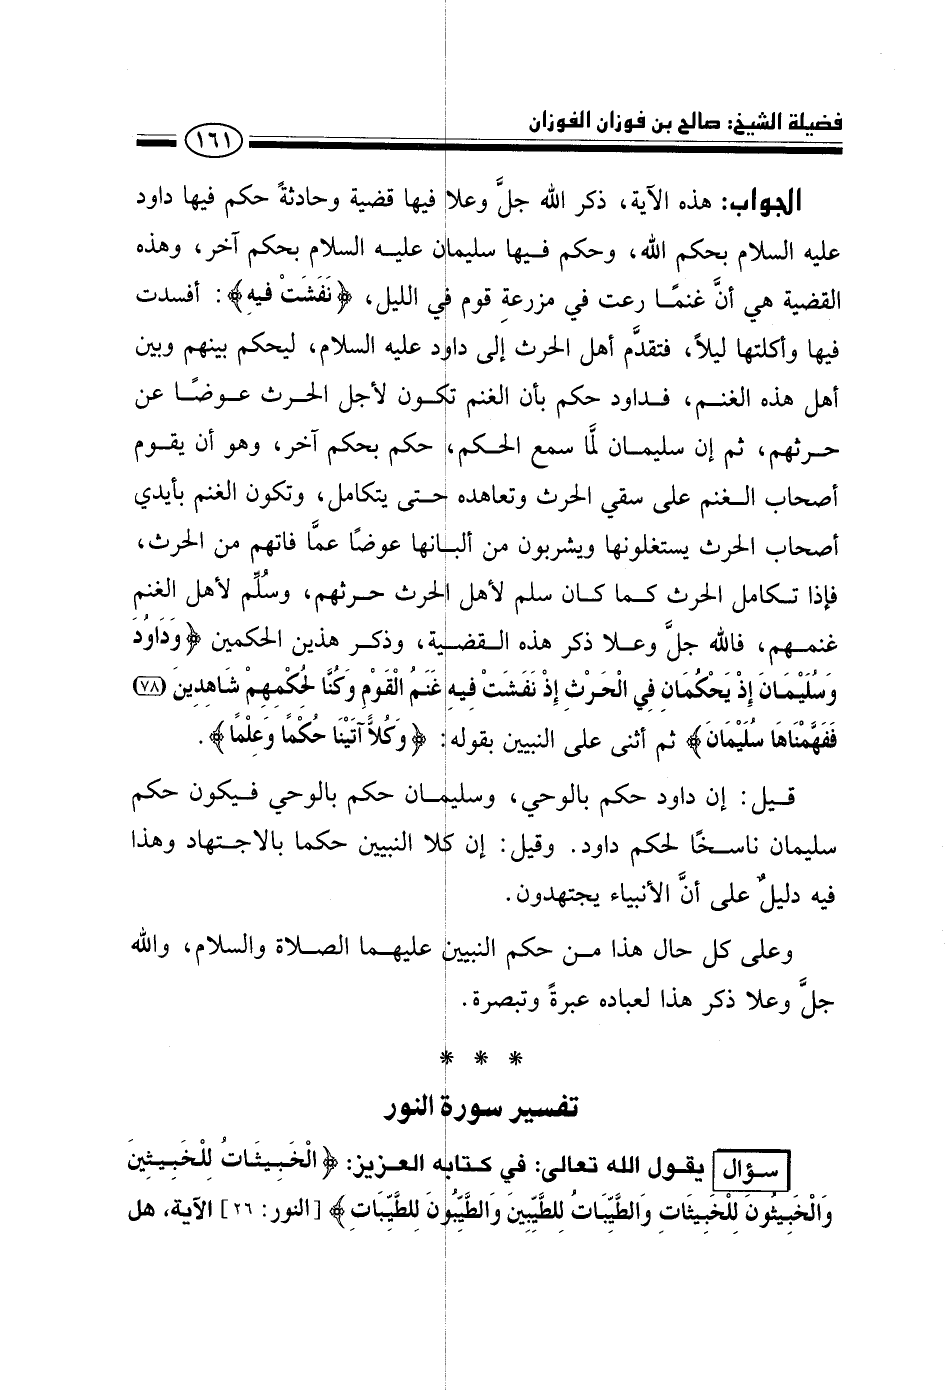 فضيلة الشيخ: صالح بن فوزان الفوزان
١٦١
الجواب: هذه الآية، ذكر الله جلَّ وعلا فيها قضية وحادثةً حكم فيها داود
عليه السلام بحكم الله، وحكم فيها سليمان عليه السلام بحكم آخر، وهذه
القضية هي أنَّ غنمًا رعت في مزرعةِ قوم في الليل، ﴿نَفَشَتْ فيه﴾: أفسدت
فيها وأكلتها ليلاً، فتقدَّم أهل الحرث إلى داود عليه السلام، ليحكم بينهم وبين
أهل هذه الغنم، فداود حكم بأن الغنم تكون لأجل الحرث عوضًا عن
حرثهم، ثم إن سليمان لمَّا سمع الحكم، حكم بحكم آخر، وهو أن يقوم
أصحاب الغنم على سقي الحرث وتعاهده حتى يتكامل، وتكون الغنم بأيدي
أصحاب الحرث يستغلونها ويشربون من ألبانها عوضًا عمَّا فاتهم من الحرث،
فإذا تكامل الحرث كما كان سلم لأهل الحرث حرثهم، وسُلِّم لأهل الغنم
غنمهم، فالله جلَّ وعلا ذكر هذه القضية، وذكر هذين الحكمين ﴿وَدَاوُدَ
وَسُلَيْمَانَ إِذْ يَحْكُمَانِ فِي الْحَرْثِ إِذْ نَفَشَتْ فِيهِ غَنَمُ الْقَوْمِ وَكُنَّا لِحُكْمِهِمْ شَاهِدِينَ (٧٨)
فَفَهَّمْنَاهَا سُلَيْمَانَ﴾ ثم أثنى على النبيين بقوله: ﴿وَكُلاًّ آتَيْنَا حُكْمًا وَعِلْمًا﴾.
قيل: إن داود حكم بالوحي، وسليمان حكم بالوحي فيكون حكم
سليمان ناسخًا لحكم داود. وقيل: إن كلا النبيين حكما بالاجتهاد وهذا
فيه دليلٌ على أنَّ الأنبياء يجتهدون.
وعلى كل حال هذا من حكم النبيين عليهما الصلاة والسلام، والله
جلَّ وعلا ذكر هذا لعباده عبرةً وتبصرة.
* * *
تفسير سورة النور
سؤال يقول الله تعالى: في كتابه العزيز: ﴿الْخَبِيثَاتُ لِلْخَبِيثِينَ
وَالْخَبِيثُونَ لِلْخَبِيثَاتِ وَالطَّيِّبَاتُ لِلطَّيِّبِينَ وَالطَّيِّبُونَ لِلطَّيِّبَاتِ﴾ [النور: ٢٦] الآية، هل